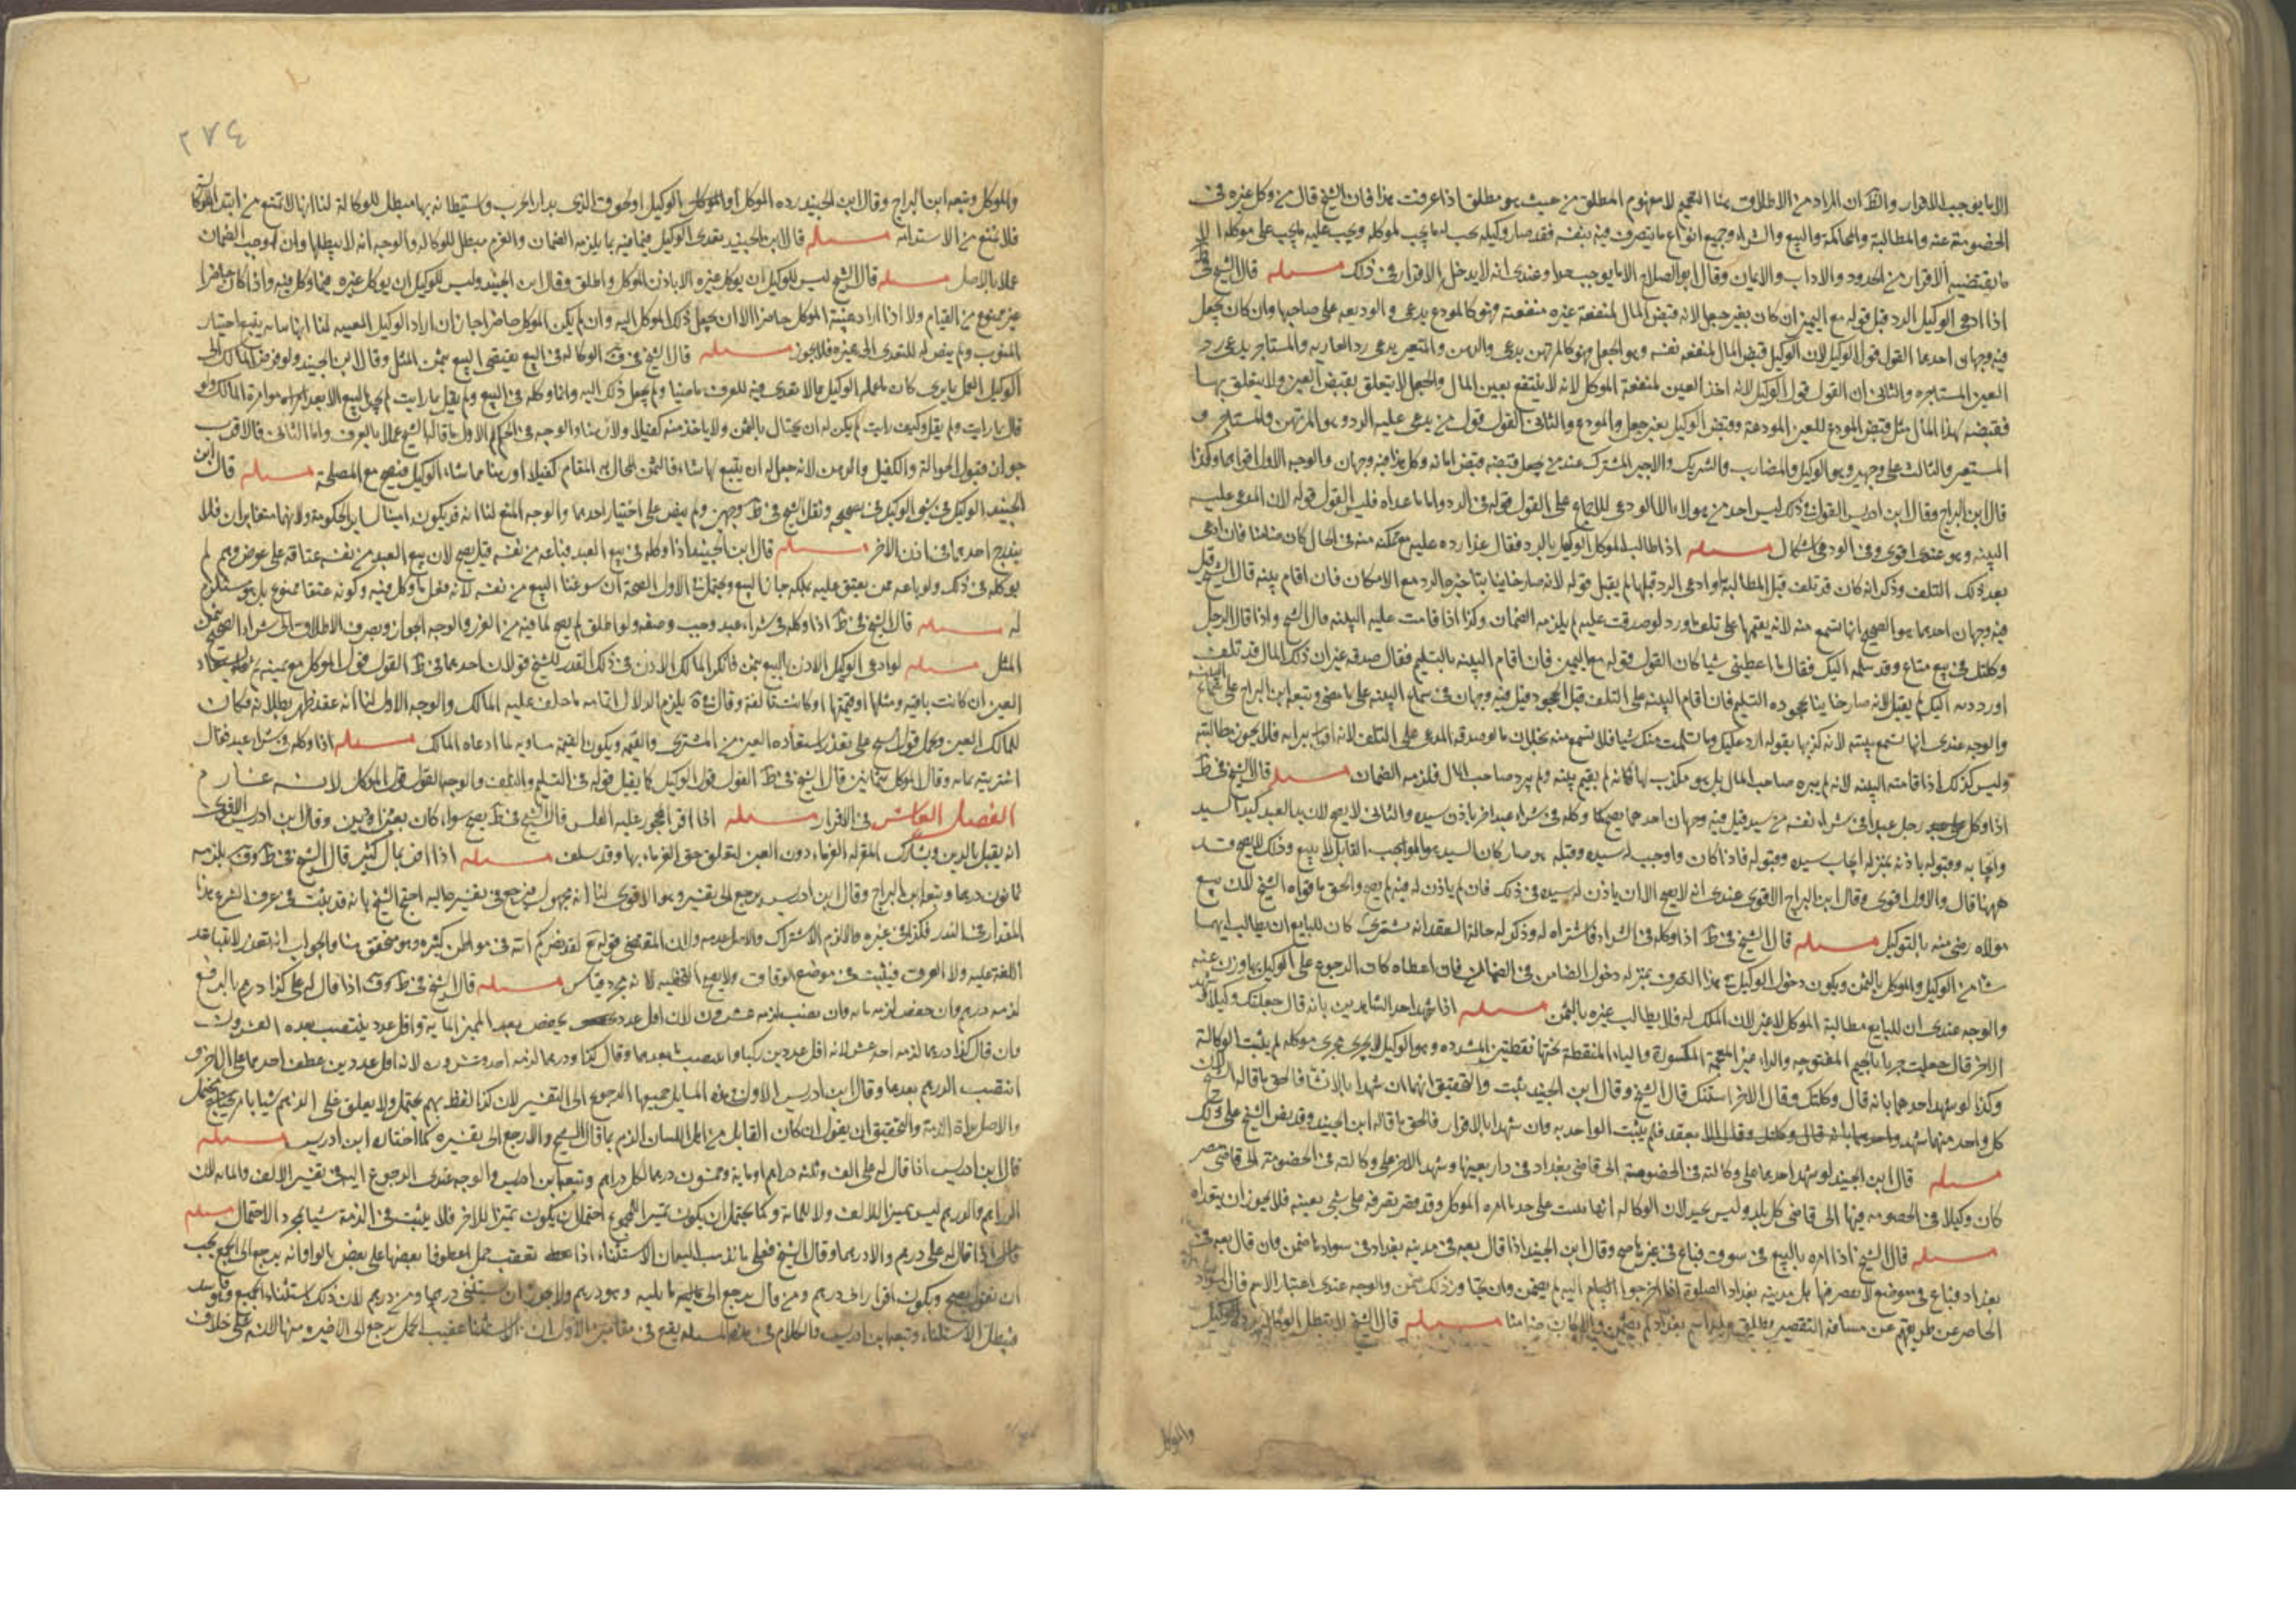 الا بما يوجب الاقرار والظ ان المراد من الاطلاق هنا التعميم لا مفهوم المطلق من حيث هو مطلق اذا عرفت هذا فان الشيخ قال من وكل غيره في
الخصومة عنه والمطالبة والمحاكمة والبيع والشراء وجميع انواع ما يتصرف فيه بنفسه فقد صار وكيله يجب له ما يجب لموكله ويجب عليه ما يجب على موكله الا
ما يقتضيه الاقرار من الحدود والاداب والايمان وقال ابو الصلاح الا ما يوجب حدا وعندى انه لا يدخل الاقرار في ذلك مسئلة قال الشيخ في
اذا ادعى الوكيل الرد قبل قوله مع اليمين ان كان بغير جعل لانه قبض المال لمنفعة غيره فهو كالمودع يدعى رد الوديعه على صاحبها وان كان بجعل
فيه وجهان احدهما القول قول الموكل لان الوكيل قبض المال لمنفعه نفسه وهو الجعل فهو كالمرتهن يدعى رد الرهن والمستعير يدعى رد العاريه والمستاجر يدعى رد
العين المستاجره والثانى ان القول قول الوكيل لانه اخذ العين لمنفعة الموكل لانه لا ينتفع بعين المال والجعل لا يتعلق بقبض العين ولا يتعلق بها
فقبضه لهذا المال مثل قبض المودع للعين المودعة وقبض الوكيل بغير جعل والمودع والثانى القول قول من يدعى عليه الرد وهو المرتهن والمستاجر و
المستعير والثالث على وجهين وهو الوكيل والمضارب والشريك والاجير المشترك عند من يجعل قبضه قبض امانه وكل هذا فيه وجهان والوجه الاول اقواهما وكذا
قال ابن البراج وقال ابن ادريس القول في ذلك ليس احد من هولاء الا المودعى للاجماع على القول قوله في الرد واما ما عداه فليس القول قوله لان المدعى عليه
البينه وهو عندى اقوى وفي المودعى اشكال مسئلة اذا طالب الموكل الوكيل بالرد فقال غدا رده عليه مع تمكنه منه في الحال كان ضامنا فان ادعى
بعد ذلك التلف وذكر انه كان قد تلف قبل المطالبة او ادعى الرد قبلها لم يقبل قوله لانه صار خاينا بتاخيره الرد مع الامكان فان اقام بينه قال الشيخ قبل
فيه وجهان احدهما هو الصحيح انها تسمع منه لانه يقيمها على تلف او رد لو صدقت عليه لم يلزمه الضمان وكذا اذا قامت عليه البينه قال الشيخ واذا قال الرجل
وكلتك في بيع متاع وقد سلمه اليك فقال ما اعطيتنى شيا كان القول قوله مع اليمين فان اقام البينه بالتسليم فقال صدقه غير ان ذلك المال قد تلف
او رددته اليك لم يقبل لانه صار خاينا بجحوده التسليم فان اقام البينه على التلف قبل الجحود قيل فيه وجهان في سماع البينه على ما مضى وتبعه ابن البراج على
والوجه عندى انها تسمع بينته لانه كذبها بقوله ازد عليك وما تسلمت منك شيا فلا تسمع منه بخلاف ما لو صدقه المدعى على التلف لانه اقرار ببراءه فلا يجوز مطالبته
وليس كذلك اذا قامت البينه لانه لم يبره صاحب المال بل هو مكذب لها فكانه لم يقم بينه ولم يبره صاحب المال فلزمه الضمان مسئلة قال الشيخ في ظ
اذا وكل رجل عبدا في شراء نفسه من سيده قيل فيه وجهان احدهما يصح كما وكله في شراء عبد اخر باذن سيده والثانى لا يصح لان يد العبد كيد السيد
وايجابه وقبوله باذنه بمنزلة ايجاب سيده وقبوله فاذا كان واوجب له سيده وقبله هو صار كان السيد هو الموجب القابل للبيع وذلك لا يصح قد
ههنا قال والاول اقوى وقال ابن البراج الاقوى عندى انه لا يصح الا ان ياذن له سيده في ذلك فان لم ياذن له فيه لم يصح والحق ما قواه الشيخ لان بيع
مولاه رضى منه بالتوكيل مسئلة قال الشيخ في ظ اذا وكله في الشراء فاشتراه له وذكر له حالة العقد انه مشترى كان للبايع ان يطالب ايهما
شاء من الوكيل والموكل بالثمن ويكون دخول الوكيل في هذا التصرف بمنزلة دخول الضامن في الضمان فان اعطاه كان الرجوع على الوكيل بما وزن عنه
والوجه عندى ان للبايع مطالبة الموكل لا غير لان الملك له فلا يطالب غيره بالثمن مسئلة اذا شهد احد الشاهدين بانه قال جعلتك وكيلا وشهد
الاخر قال جعلت جريا بالجيم المفتوحه والراء غير المعجمة المكسورة والياء المنقطة تحتها نقطتين المشدده وهو الوكيل لا يجرى مجرى موكله لم يثبت الوكالة
وكذا لو شهد احدهما بانه قال وكلتك وقال الاخر استنبتك قال الشيخ وقال ابن الجنيد يثبت والتحقيق انهما ان شهدا بالانشا فالحق ما قاله الشيخ
كل واحد منهما شهد بعقد فلم يثبت الواحد به وان شهدا بالاقرار فالحق ما قاله ابن الجنيد وقد نص الشيخ على ذلك
مسئلة قال ابن الجنيد لو شهد احدهما على وكالته في الخصومة الى قاضى بغداد في دار بعينها وشهد الاخر على وكالته في الخصومة الى قاضى مصر
كان وكيلا في الخصومه فيها الى قاضى كل بلد وليس بجيد لان الوكاله انما تثبت على حد ما امره الموكل وقد قصر تصرفه على شى بعينه فلا يجوز ان يتعداه
مسئلة قال الشيخ اذا امره بالبيع في سوق فباع في غيرها صح وقال ابن الجنيد اذا قال بعه في مدينه بغداد في سوادها ضمن وان قال بعه في
بغداد فباع في موضع لا يقصر فيها بل مدينه بغداد الصلوة اذا خرجوا اليه لم يضمن وان تجاوز ذلك ضمن والوجه عندى اعتبار الاسم
الحاضر عن طريقهم عن مسافة التقصير يطلق عليه اسم بغداد لم يضمن والا كان ضامنا مسئلة قال الشيخ لا تبطل الوكالة بردة الوكيل
والموكل
٢٧٤
والموكل وتبعه ابن البراج وقال ابن الجنيد ردة الموكل او الوكيل او لحوق الذى بدار الحرب واستيطانه بها مبطل للوكالة لنا انها لا تمنع من ابتداء الوكالة
فلا تمنع من الاستدامة مسئلة قال ابن الجنيد تعدى الوكيل فيما فيه ما يلزمه الضمان والغرم مبطل للوكاله والوجه انه لا يبطلها وان اوجب الضمان
عملا بالاصل مسئلة قال الشيخ ليس للوكيل ان يوكل غيره الا باذن الموكل واطلق وقال ابن الجنيد وليس للوكيل ان يوكل غيره فيما وكل فيه واذا كان حاضرا
غير ممنوع من القيام ولا اذا اراد غيبته الموكل حاضرا الا ان يجعل ذلك الموكل اليه وان لم يكن الموكل حاضرا جاز ان اراد الوكيل الغيبه لنا انها نيابه يتبع اختيار
المنوب ولم ينص له للتعدى الى غيره فلا يجوز مسئلة قال الشيخ في ف الوكالة في البيع يقتضى البيع بثمن المثل وقال ابن الجنيد ولو فوض المالك الى
الوكيل العمل بما يرى كان ما عمله الوكيل مما لا تعدى فيه للعرف ماضيا ولم يجعل ذلك اليه وانما وكله في البيع ولم يقل ما رايت لم يجز البيع الا بعد موامرة المالك ولو
قال ما رايت ولم يقل وكيف رايت لم يكن له ان يحتال بالثمن ولا ياخذ منه كفيلا ولا رهنا والوجه في الحكم الاول ما قاله الشيخ عملا بالعرف واما الثانى فالاقرب
جوازه قبول الحوالة والكفيل والرهن لانه جعل له ان يبيع بما شاء فالثمن المحال به المقام كفيلا او رهنا مما شاء الوكيل فيصح مع المصلحة مسئلة قال ابن
الجنيد الوكيل في شى الوكيل في صحيحه ونقل الشيخ في ظ وجهين ولم ينص على اختيار احدهما والوجه المنع لنا انه قد يكون امينا لساير الحكومة ولانهما متغايران فلا
يندرج احدهما في اذن الاخر مسئلة قال ابن الجنيد اذا وكله في بيع العبد فباعه من نفسه قيل يصح لان بيع العبد من نفسه عتاقه على عوض وهو لم
يوكله في ذلك ولو باعه ممن يعتق عليه بملكه جاز البيع ويحتمل في الاول الصحة ان سوغنا البيع من نفسه لانه فعل ما وكل فيه وكونه عتقا ممنوع بل هو مستلزم
له مسئلة قال الشيخ في ظ اذا وكله في شراء عبد وجب وصفه ولو اطلق لم يصح لما فيه من الغرر والوجه الجواز ويصرف الاطلاق الى شراء الصحيح بثمن
المثل مسئلة لو ادعى الوكيل الاذن بالبيع بثمن فانكر المالك الاذن في ذلك القدر للشيخ قولان احدهما في ظ القول قول الموكل مع يمينه ثم
العين ان كانت باقيه ومثلها او قيمتها او كانت تالفة وقال في ية يلزم الدلال اتمامه ما حلف عليه المالك والوجه الاول لنا انه عقد ظهر بطلانه فكان
للمالك العين ويحمل قول الشيخ على تعذر استعاده العين من المشترى والقيمه ويكون القيمه مساويه لما ادعاه المالك مسئلة اذا وكله في شراء عبد فقال
اشتريته بمائه وقال الموكل بثمانين قال الشيخ في ظ القول قول الوكيل كما يقبل قوله في التسليم والتلف والوجه القول قول الموكل لانه غارم
الفصل العاشر في الاقرار مسئلة اذا اقر المحجور عليه الفلس قال الشيخ في ظ يصح سواء كان بعين او دين وقال ابن ادريس الاقوى
انه يقبل بالدين ويشارك المقر له الغرماء دون العين لتعلق حق الغرماء بها وقد سلف مسئلة اذا اقر بمال كثير قال الشيخ في ظ وف يلزمه
ثمانون درهما وتبعه ابن البراج وقال ابن ادريس يرجع الى تفسيره وهو الاقوى لنا انه مجهول فيرجع في تفسيره اليه احتج الشيخ بانه قد يثبت في عرف الشرع هذا
المقدار في النذر فكذا في غيره والا لزم الاشتراك والاصل عدمه ولان المقتضى قوله تع لقد نصركم الله في مواطن كثيره وهو متحقق هنا والجواب انه تعذر لا يقتضيه
اللغة عليه ولا العرف فيثبت في موضع الوفاق ولا يصح التخطيه لانه مجرد قياس مسئلة قال الشيخ في ظ وف اذا قال له على كذا درهم بالرفع
لزمه درهم وان خفض لزمه مائه وان نصب لزمه عشرون لان اقل عدد يخفض بعده المميز المايه واقل عدد ينتصب بعده العشرون
وان قال كذا كذا درهما لزمه احد عشر لانه اقل عددين ركبا وانتصب ما بعدهما وقال كذا وكذا درهما لزمه احد وعشرون لانه اقل عددين عطف احدهما على الاخر و
انتصب الدرهم بعدهما وقال ابن ادريس الاولى في هذه المسايل جميعها الرجوع الى التفسير لان كذا لفظ مبهم محتمل ولا يعلق على الذمم شيا بامر محتمل
والاصل براءة الذمة والتحقيق ان يقول ان كان القايل من اهل اللسان الزم بما قال الشيخ والا رجع الى تفسيره كما اختاره ابن ادريس مسئلة
قال ابن ادريس اذا قال له على الف وثلثه دراهم او مايه وخمسون درهما لكل دراهم والوجه عندى الرجوع اليه في تفسير الالف والمائه لان
الدراهم والدرهم ليس تميزا للالف ولا للمائة وكما يحتمل ان يكون تميزا للمجموع احتمل ان يكون تميزا للاخر فلا يثبت في الذمة شيا بمجرد الاحتمال مسئلة
اذا قال له على درهم ودرهم الا درهما وقال الشيخ فعلى ما نذهب اليه ان الاستثناء اذا تعقب جمل معطوفا بعضها على بعض بالواو انه يرجع الى الجميع يجب
ان يقول يصح ويكون اقرارا بدرهم ومن قال يرجع الى ما يليه وهو درهم ولا يجوز ان يستثنى درهما من درهم لان ذلك استثناء الجميع وهو فاسد
فيبطل الاستثناء وتبعه ابن ادريس والكلام في هذه المسئلة يقع في مقامين الاول ان الاستثناء عقيب الجمل يرجع الى الاخيره منها لانه على خلاف